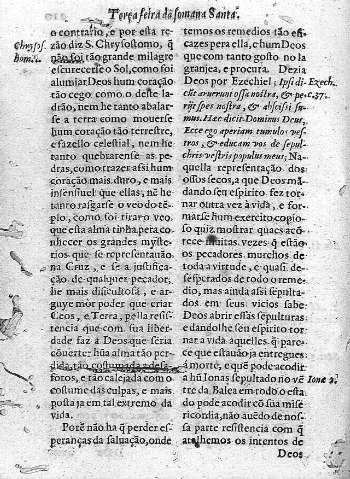 Terça feira da somana Santa.
Chrysos.
hom. 1.
o contrario, e por esta re-
zão diz S. Chrysostomo, q̃
não foi tão grande milagre
escurecerse o Sol, como foi
alumiar Deos hum coração
tão cego como o deste la-
drão, nem he tanto abalar-
se a terra como mouerse
hum coração tão terrestre,
e fazello celestial, nem he
tanto quebrarense as pe-
dras, como trazer a si hum
coração mais duro, e mais
insensiuel que ellas, nẽ he
tanto rasgarse o veo do tẽ-
plo, como foi tirar o veo
que esta alma tinha, pera co
nhecer os grandes myste-
rios que se representauão
na Cruz, e se a justificação
de qualquer pecador,
he mais dificultosa, e ar-
guye môr poder que criar
Ceos, e Terra, pella resis-
tencia que com sua liber-
dade faz a Deos que seria
cõuerter hũa alma tão per-
dida, tão costumada a desa-
foros, e tão calejada com o
costume das culpas, e mais
posta ja em tal extremo da
vida.
Porẽ não ha q̃ perder es-
peranças da saluação, onde
temos os remedios tão efi-
cazes pera ella, e hum Deos
que com tanto gosto no la
granjea, e procura. Dezia
Deos por Ezechiel; Ipsi di-
cunt aruerunt ossa nostra, & pe-
rijt spes nostra, & abscissi su-
mus. Hæc dicit Dominus Deus,
Ecce ego aperiam tumulos ves-
tros, & educam vos de sepul-
chris vestris populus meus; Na-
quella representação dos
ossos secos, a que Deos mã-
dando seu espirito fez tor-
nar outra vez à vida, e for-
marse hum exercito copio-
so quiz mostrar quaes acõ-
tece muitas vezes q̃ estão
os pecadores murchos de
toda a virtude, e quasi de-
sesperados de todo o reme-
dio, mas ainda assi sepulta-
dos em seus vicios sabe
Deos abrir essas sepulturas
e dandolhe seu espirito tor-
nar à vida aquelles q̃ pare-
ce que estauão ja entregues
à morte, e quẽ pode acodir
a hũ Ionas sepultado no vẽ
tre da Balea em todo o esta
do pode acodir cõ sua mise
ricordia, não auẽdo de nos-
sa parte resistencia com q̃
atolhemos os intentos de
Deos
Ezech.
c. 37.
Ionæ 2.